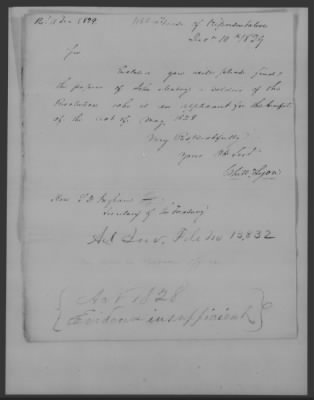 House of Representatives
Decr 10th 1829
Sir
Enclosed you will please find
the papers of John a soldier of the
Revolution who is an applicant for the benefit
of the act of May 1828
Very Respectfully
Your Ob Servt
Lyon
Hon S D Ingham
Secretary of the Treasury
File No 13,832
Act 1828
Evidence insufficient